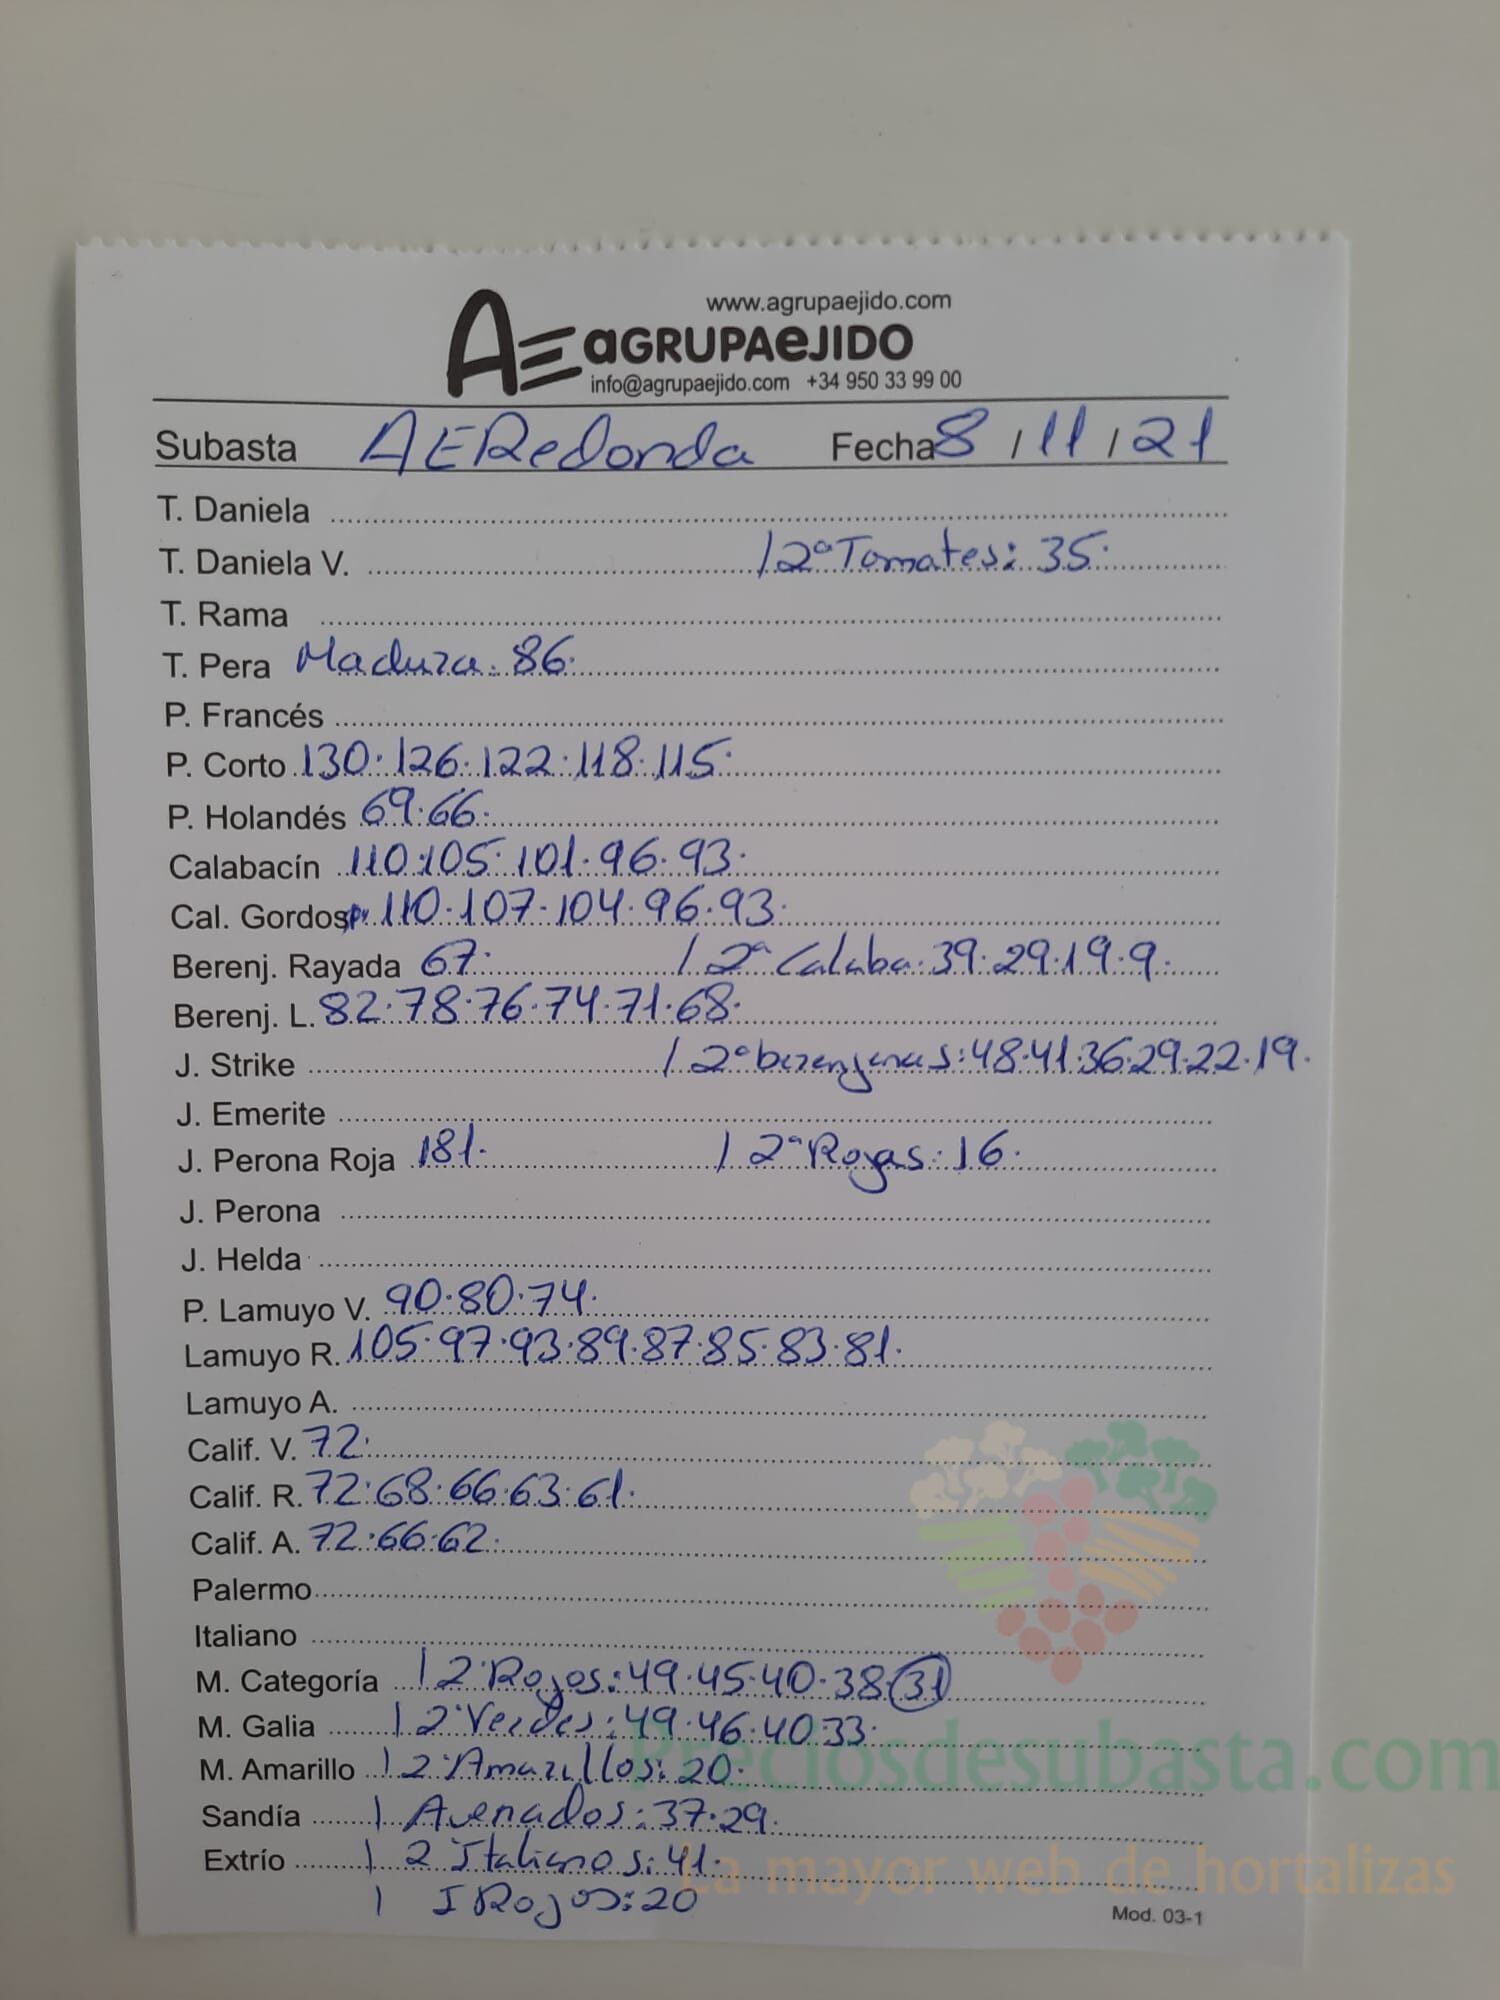 www.agrupaejido.com
AE aGRUPAeJIDO
info@agrupaejido.com +34 950 33 99 00
Subasta AERedonda Fecha 8/11/21
T. Daniela
T. Daniela V. / 2ª Tomates: 35.
T. Rama
T. Pera Madura. 86.
P. Francés
P. Corto 130. 126. 122. 118. 115.
P. Holandés 69. 66.
Calabacín 110. 105. 101. 96. 93.
Cal. Gordos 110. 107. 104. 96. 93.
Berenj. Rayada 67. / 2ª Calaba. 39. 29. 19. 9.
Berenj. L. 82. 78. 76. 74. 71. 68.
J. Strike / 2ª berenjenas: 48. 41. 36. 29. 22. 19.
J. Emerite
J. Perona Roja 181. / 2ª Rojas: 16.
J. Perona
J. Helda
P. Lamuyo V. 90. 80. 74.
Lamuyo R. 105. 97. 93. 89. 87. 85. 83. 81.
Lamuyo A.
Calif. V. 72.
Calif. R. 72. 68. 66. 63. 61.
Calif. A. 72. 66. 62.
Palermo
Italiano
M. Categoría / 2ª Rojos: 49. 45. 40. 38. 31
M. Galia / 2ª Verdes: 49. 46. 40. 33.
M. Amarillo / 2ª Amarillos: 20.
Preciosdesubasta.com
Sandía / Avenados: 37. 29.
Extrío / 2 Italianos: 41.
La mayor web de hortalizas
/ I Rojos: 20
Mod. 03-1